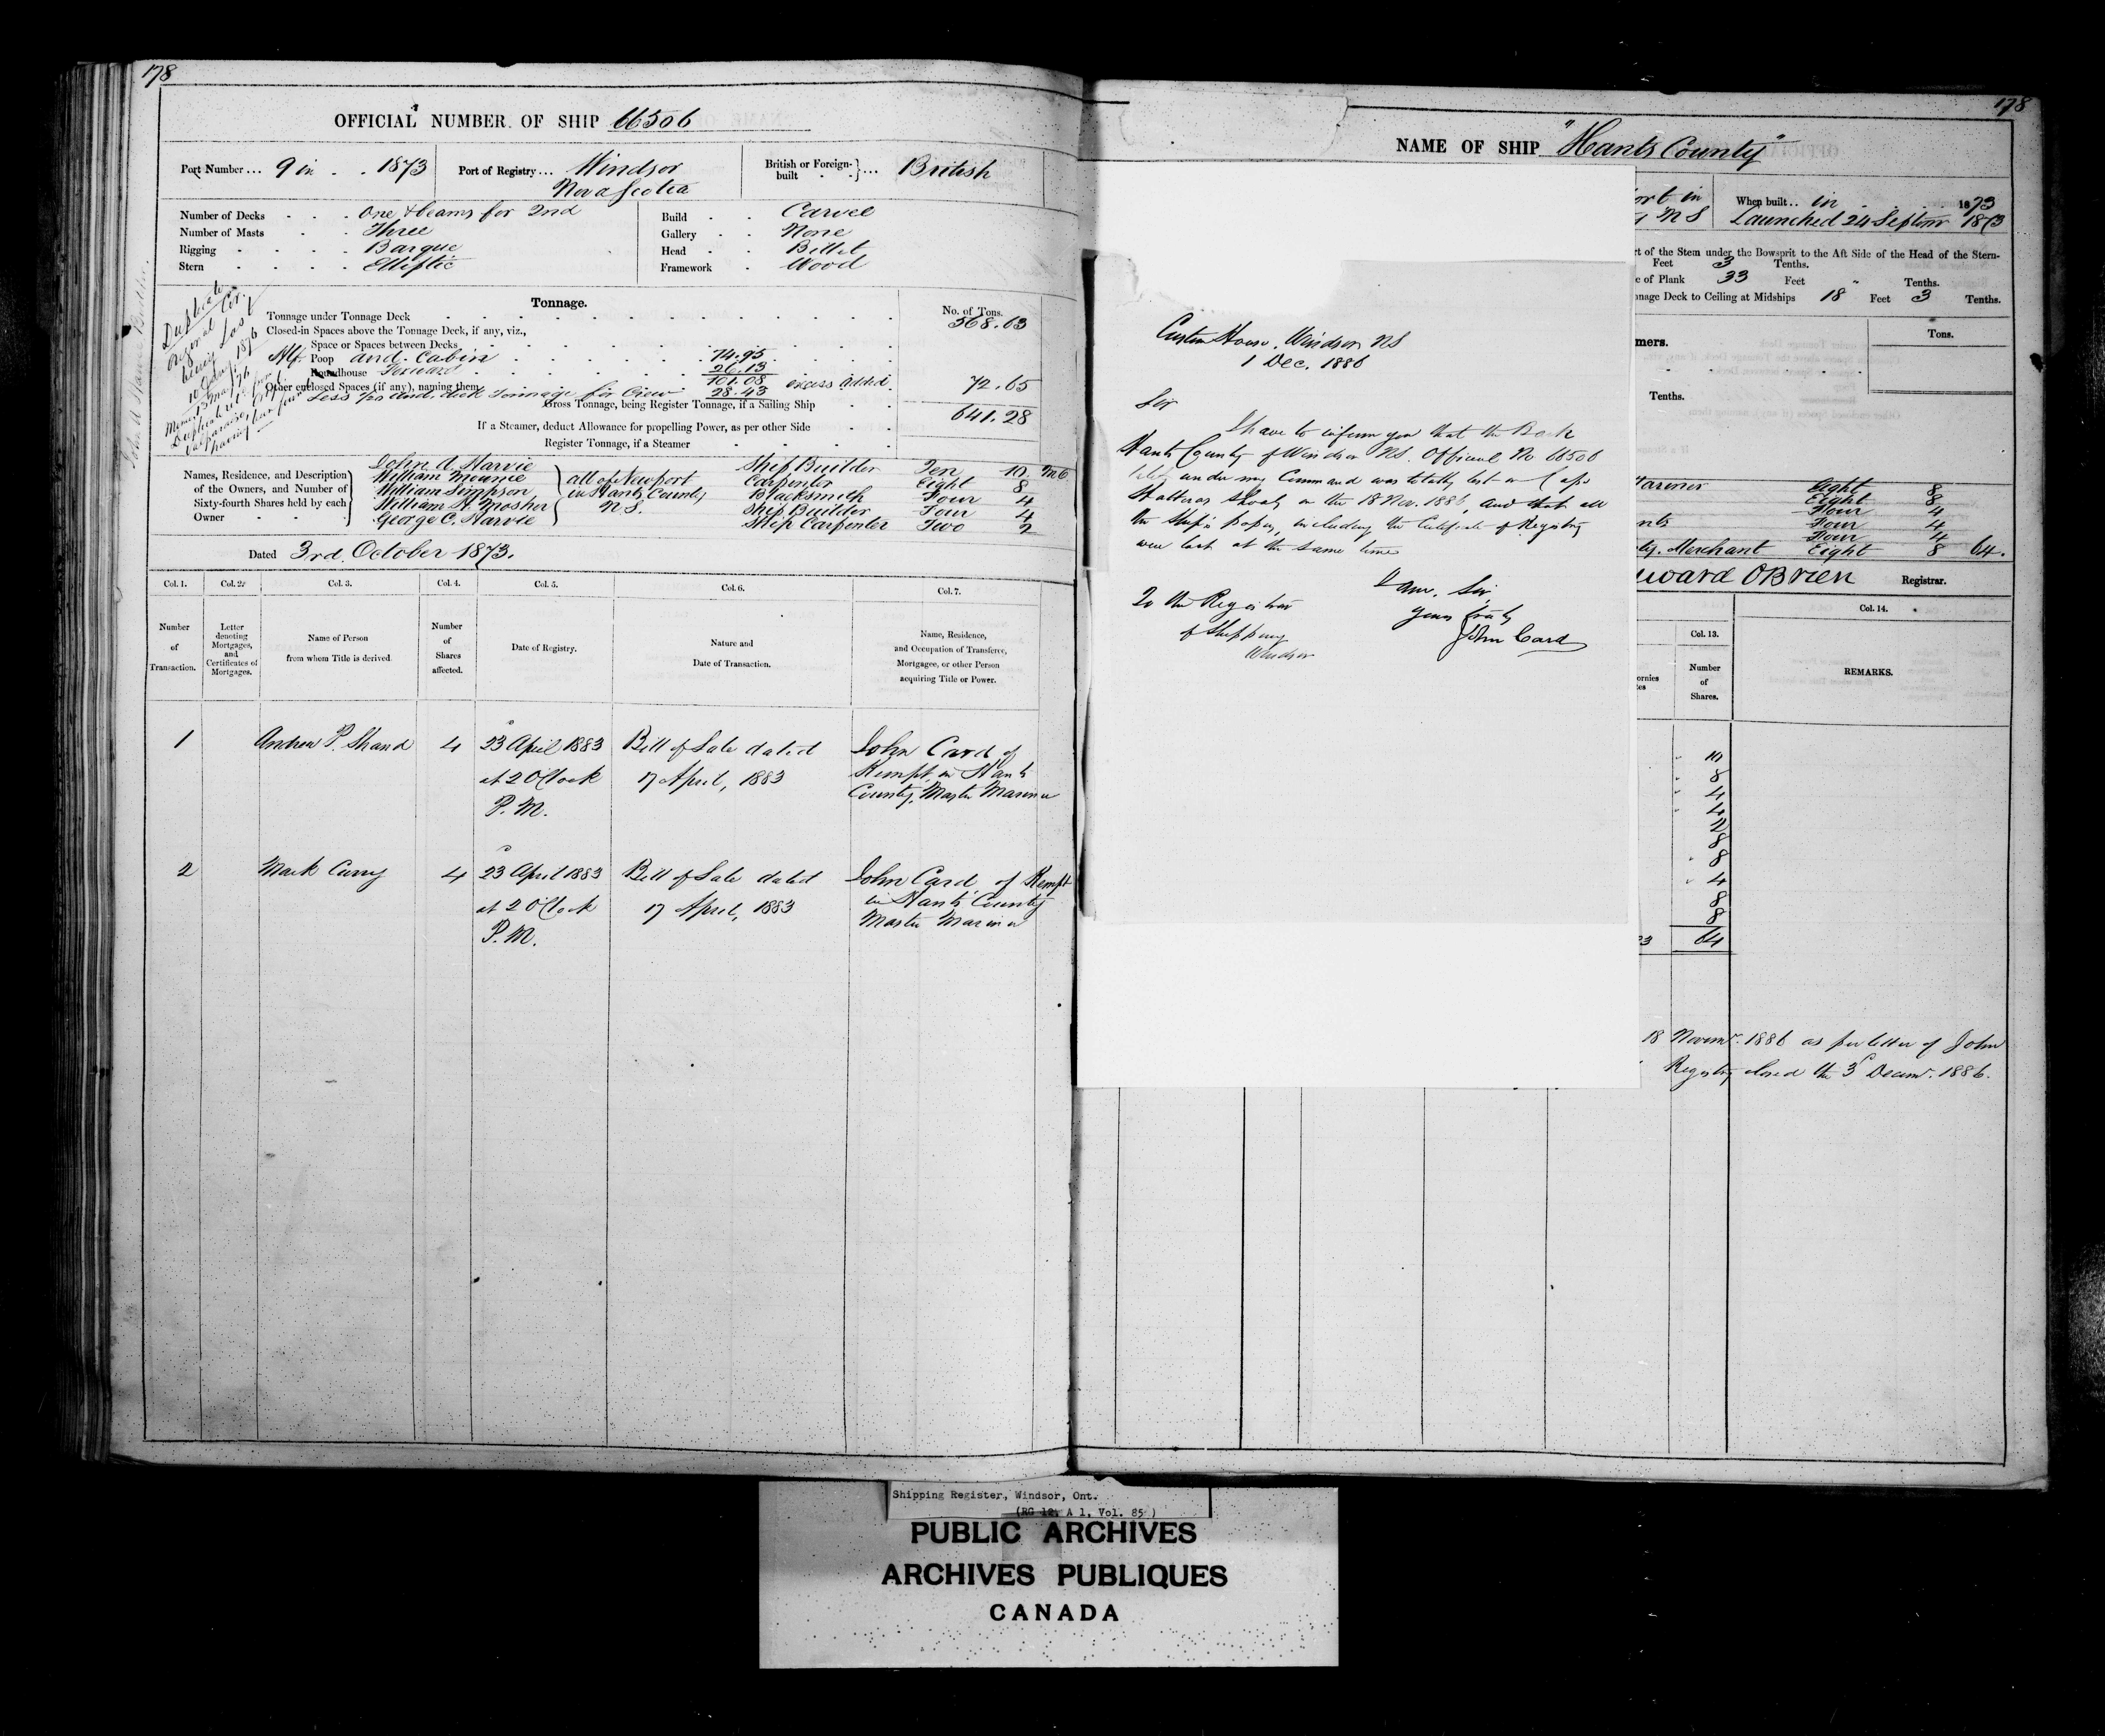 178
OFFICIAL NUMBER OF SHIP 66506
Port Number ... 9 in . . 1873
Port of Registry ... Windsor
Nova Scotia
British or Foreign-built . . } ... British
Number of Decks . . . One & beams for 2nd
Number of Masts . . . Three
Rigging . . . . Barque
Stern . . . . Elliptic
Build . . Carvel
Gallery . . None
Head . . Billet
Framework . Wood
Duplicate Cer
Original
being Lost
1876
Tonnage.
No. of Tons.
Tonnage under Tonnage Deck 568.63
Closed-in Spaces above the Tonnage Deck, if any, viz.,
Space or Spaces between Decks
Poop and Cabin 74.95
Roundhouse Forward 26.13
Other enclosed Spaces (if any), naming them 101.08 excess added 72.65
Less for and. deck Tonnage for Crew 28.43
Gross Tonnage, being Register Tonnage, if a Sailing Ship 641.28
If a Steamer, deduct Allowance for propelling Power, as per other Side
Register Tonnage, if a Steamer
Names, Residence, and Description
of the Owners, and Number of
Sixty-fourth Shares held by each
Owner
John A. Harvie Ship Builder Ten 10
William Mounce Carpenter Eight 8
William Simpson Blacksmith Four 4
William H. Mosher Ship Builder Four 4
George C. Harvie Ship Carpenter Two 2
all of Newport
in Hants County
N.S.
Dated 3rd. October 1873.
Col. 1. Col. 2. Col. 3. Col. 4. Col. 5. Col. 6. Col. 7.
Number of Transaction.
Letter denoting Mortgages, and Certificates of Mortgages.
Name of Person from whom Title is derived.
Number of Shares affected.
Date of Registry.
Nature and Date of Transaction.
Name, Residence, and Occupation of Transferee, Mortgagee, or other Person acquiring Title or Power.
1 Andrew P. Shand 4 23 April 1883 Bill of Sale dated John Card of
at 2 O'Clock 17 April, 1883 Kempt, in Hants
P.M. County, Master Mariner
2 Mark Curry 4 23 April 1883 Bill of Sale dated John Card, of Kempt
at 2 O'Clock 17 April, 1883 in Hants County
P.M. Master Mariner
178
NAME OF SHIP "Hants County"
ort in
N S
When built .. in . . . 1873
Launched 24 Septemr 1873
rt of the Stem under the Bowsprit to the Aft Side of the Head of the Stern-
Feet 3 Tenths.
e of Plank 33 Feet " Tenths.
nnage Deck to Ceiling at Midships 18 Feet 3 Tenths.
mers.
Tons.
Tenths.
Mariner Eight 8
Eight 8
Four 4
nts Four 4
Four 4
Merchant Eight 8 64.
ward OBrien Registrar.
Col. 13.
Col. 14.
ornies
tes
Number of Shares.
REMARKS.
10
8
4
4
2
8
8
4
8
8
64
18 Novemr. 1886 as per letter of John
Registry closed the 3d Decemr. 1886.
Custom House, Windsor NS
1 Dec. 1886
Sir
I have to inform you that the Bark
Hants County of Windsor NS. Official No 66506
lately under my Command was totally lost on Cape
Hatteras Shoals on the 18 Nov. 1886, and that all
the Ship's papers, including the Certificate of Registry
were lost at the same time
I am, Sir,
Yours truly
John Card
To the Registrar
of Shipping
Windsor
Shipping Register, Windsor, Ont.
(RG 12, A 1, Vol. 85)
PUBLIC ARCHIVES
ARCHIVES PUBLIQUES
CANADA